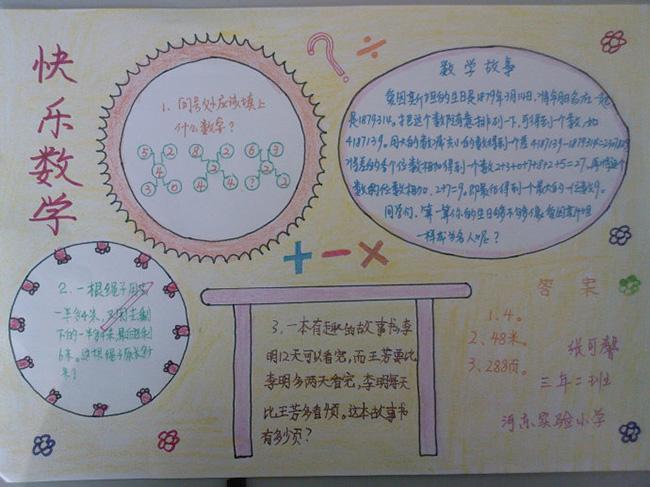 快乐数学
1. 问号处应该填上
什么数字？
5 2 8 2 6 3
4 2 2
3 0 4 4 ? 2
数学故事
爱因斯坦的生日是1879年3月14日，
是1879314。把这个数随意排列一下，可得到一个数，如
4187139。用大的数减去小的数得到一个差4187139-1879314=2307825
将差的各个位数相加得到一个数2+3+0+7+8+2+5=27。再将这个
数的位数相加，2+7=9。即最后得到一个最大的一位数9。
同学们，算一算你的生日够不够像爱因斯坦
一样成为名人呢？
+ - ×
? ÷
2. 一根绳子用去
一半多4米，又用去剩
下的一半多4米，最后还剩
6米。这根绳子原长多少
米？
3. 一本有趣的故事书，李
明12天可以看完，而王芳要比
李明多两天看完，李明每天
比王芳多看4页。这本故事书
有多少页？
答案
1. 4。
2. 48米。
3. 288页。
张可馨
三年二班
河东实验小学